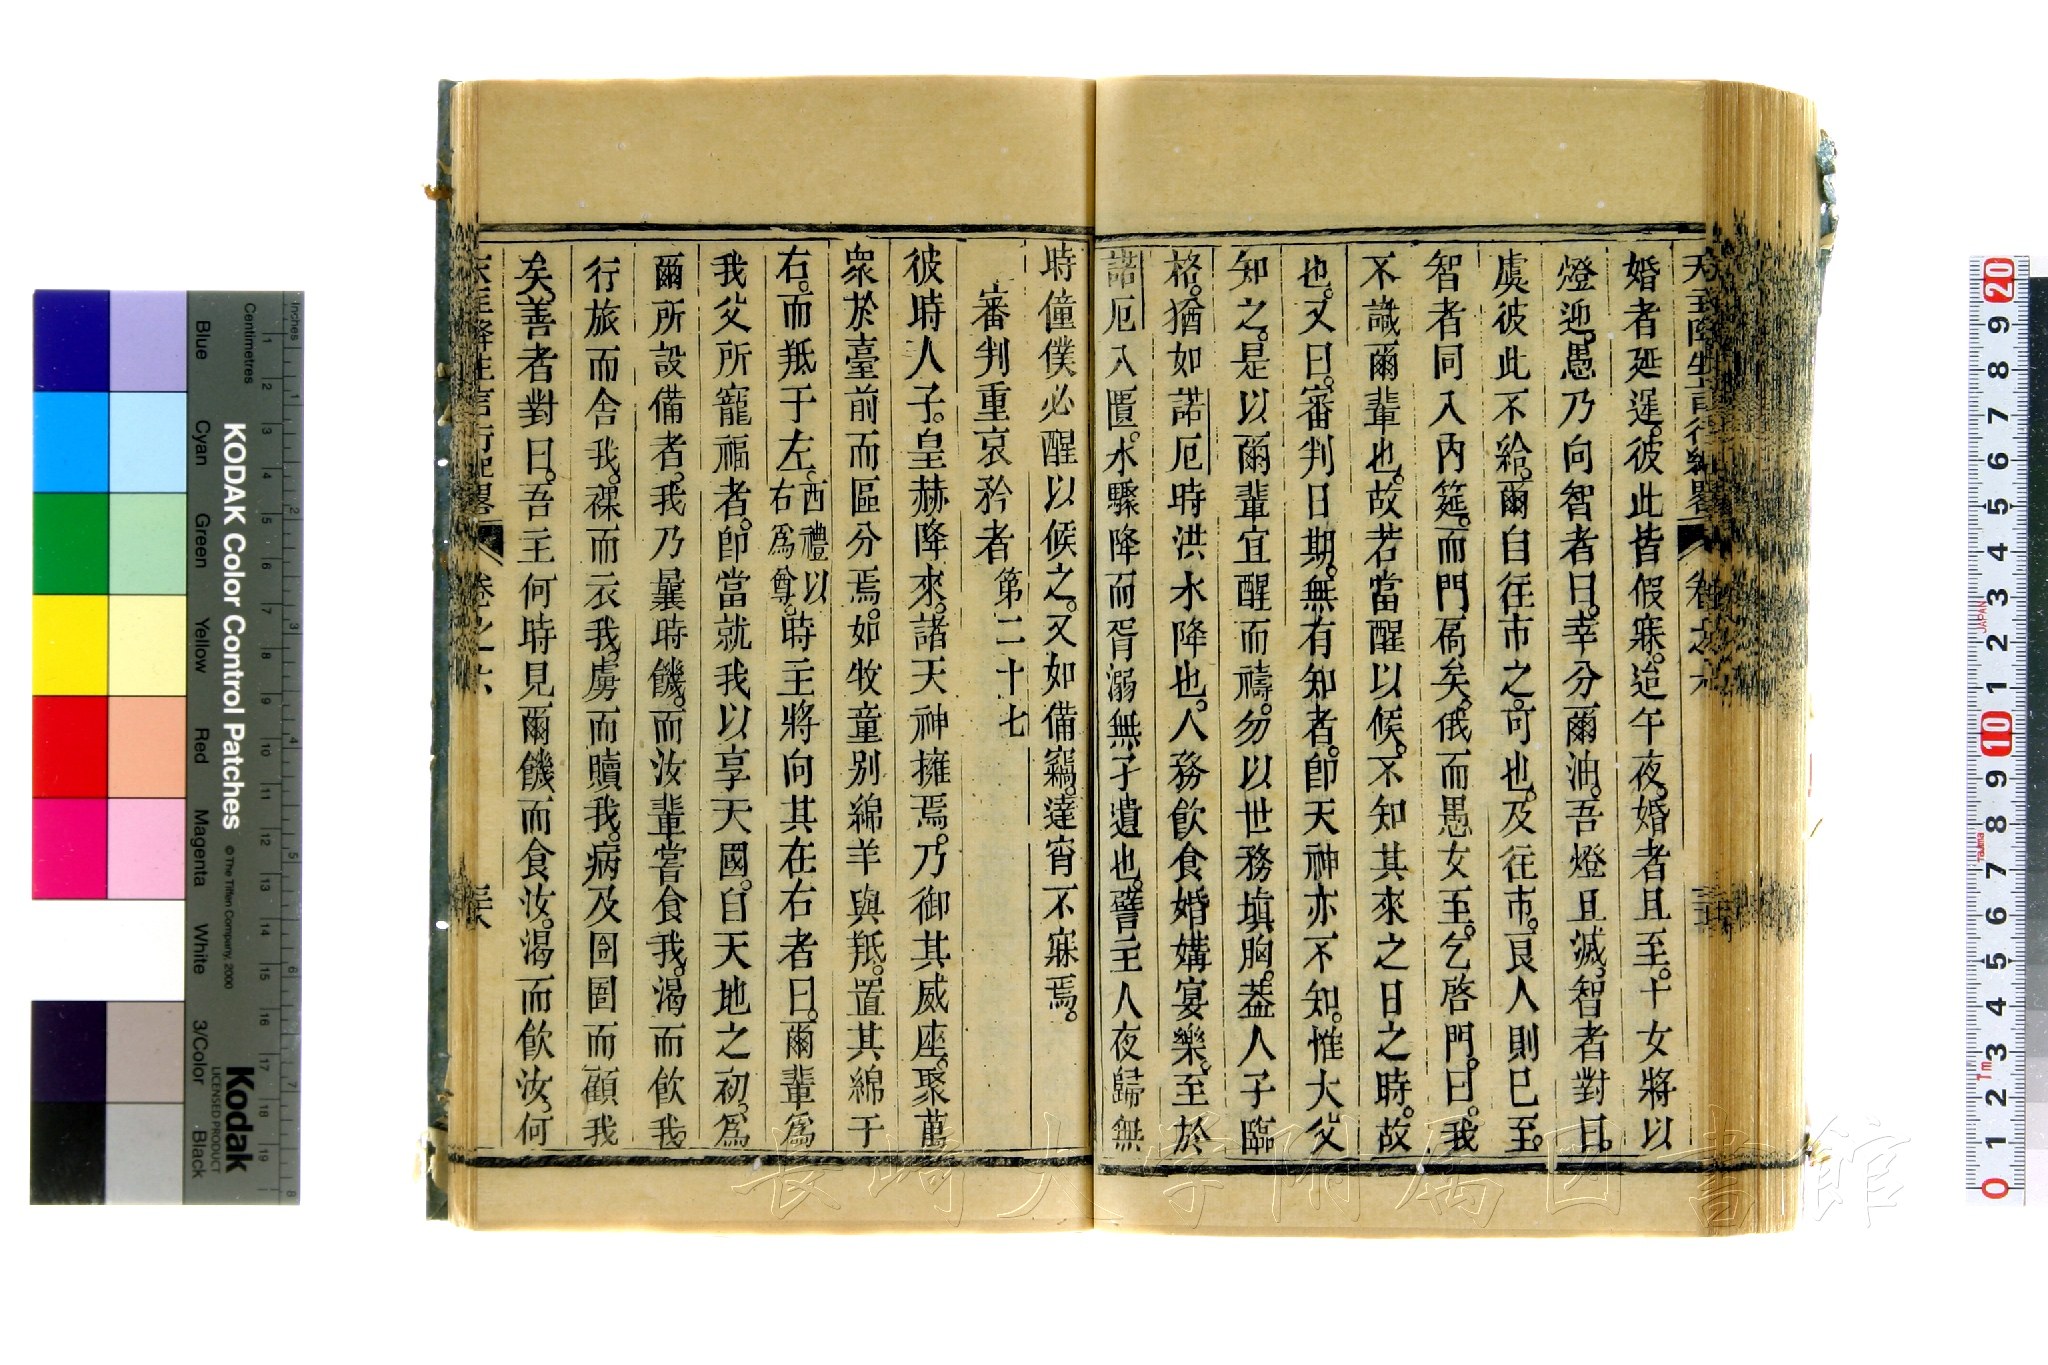 天主降生言行紀畧 卷之六
婚者延遲。彼此皆假寐。迨午夜。婚者且至。十女將以
燈迎。愚乃向智者曰。幸分爾油。吾燈且滅。智者對曰。
虞彼此不給。爾自往市之。可也。及往市。良人則已至。
智者同入內筵。而門扃矣。俄而愚女至。乞啓門。曰。我
不識爾輩也。故若當醒以候。不知其來之日之時。故
也。又曰。審判日期。無有知者。卽天神亦不知。惟大父
知之。是以爾輩宜醒而禱。勿以世務塡胸。葢人子臨
格。猶如諾厄時洪水降也。人務飮食婚媾宴樂。至於
諾厄入匱。水驟降而胥溺無孑遺也。譬主人夜歸無
時僮僕必醒以候之。又如備竊。達宵不寐焉。
審判重哀矜者 第二十七
彼時人子。皇赫降來。諸天神擁焉。乃御其威座。聚萬
衆於臺前而區分焉。如牧童別綿羊與羝。置其綿于
右。而羝于左。西禮以右爲尊。時主將向其在右者曰。爾輩爲
我父所寵福者。卽當就我以享天國。自天地之初。爲
爾所設備者。我乃曩時饑。而汝輩嘗食我。渴而飮我。
行旅而舍我。裸而衣我。虜而贖我。病及囹圄而顧我
矣。善者對曰。吾主何時見爾饑而食汝。渴而飮汝。何
天主降生言行紀畧 卷之六
KODAK Color Control Patches
© The Tiffen Company, 2000
Kodak
LICENSED PRODUCT
Inches
Centimetres
Blue
Cyan
Green
Yellow
Red
Magenta
White
3/Color
Black
JAPAN
長崎大学附属図書館